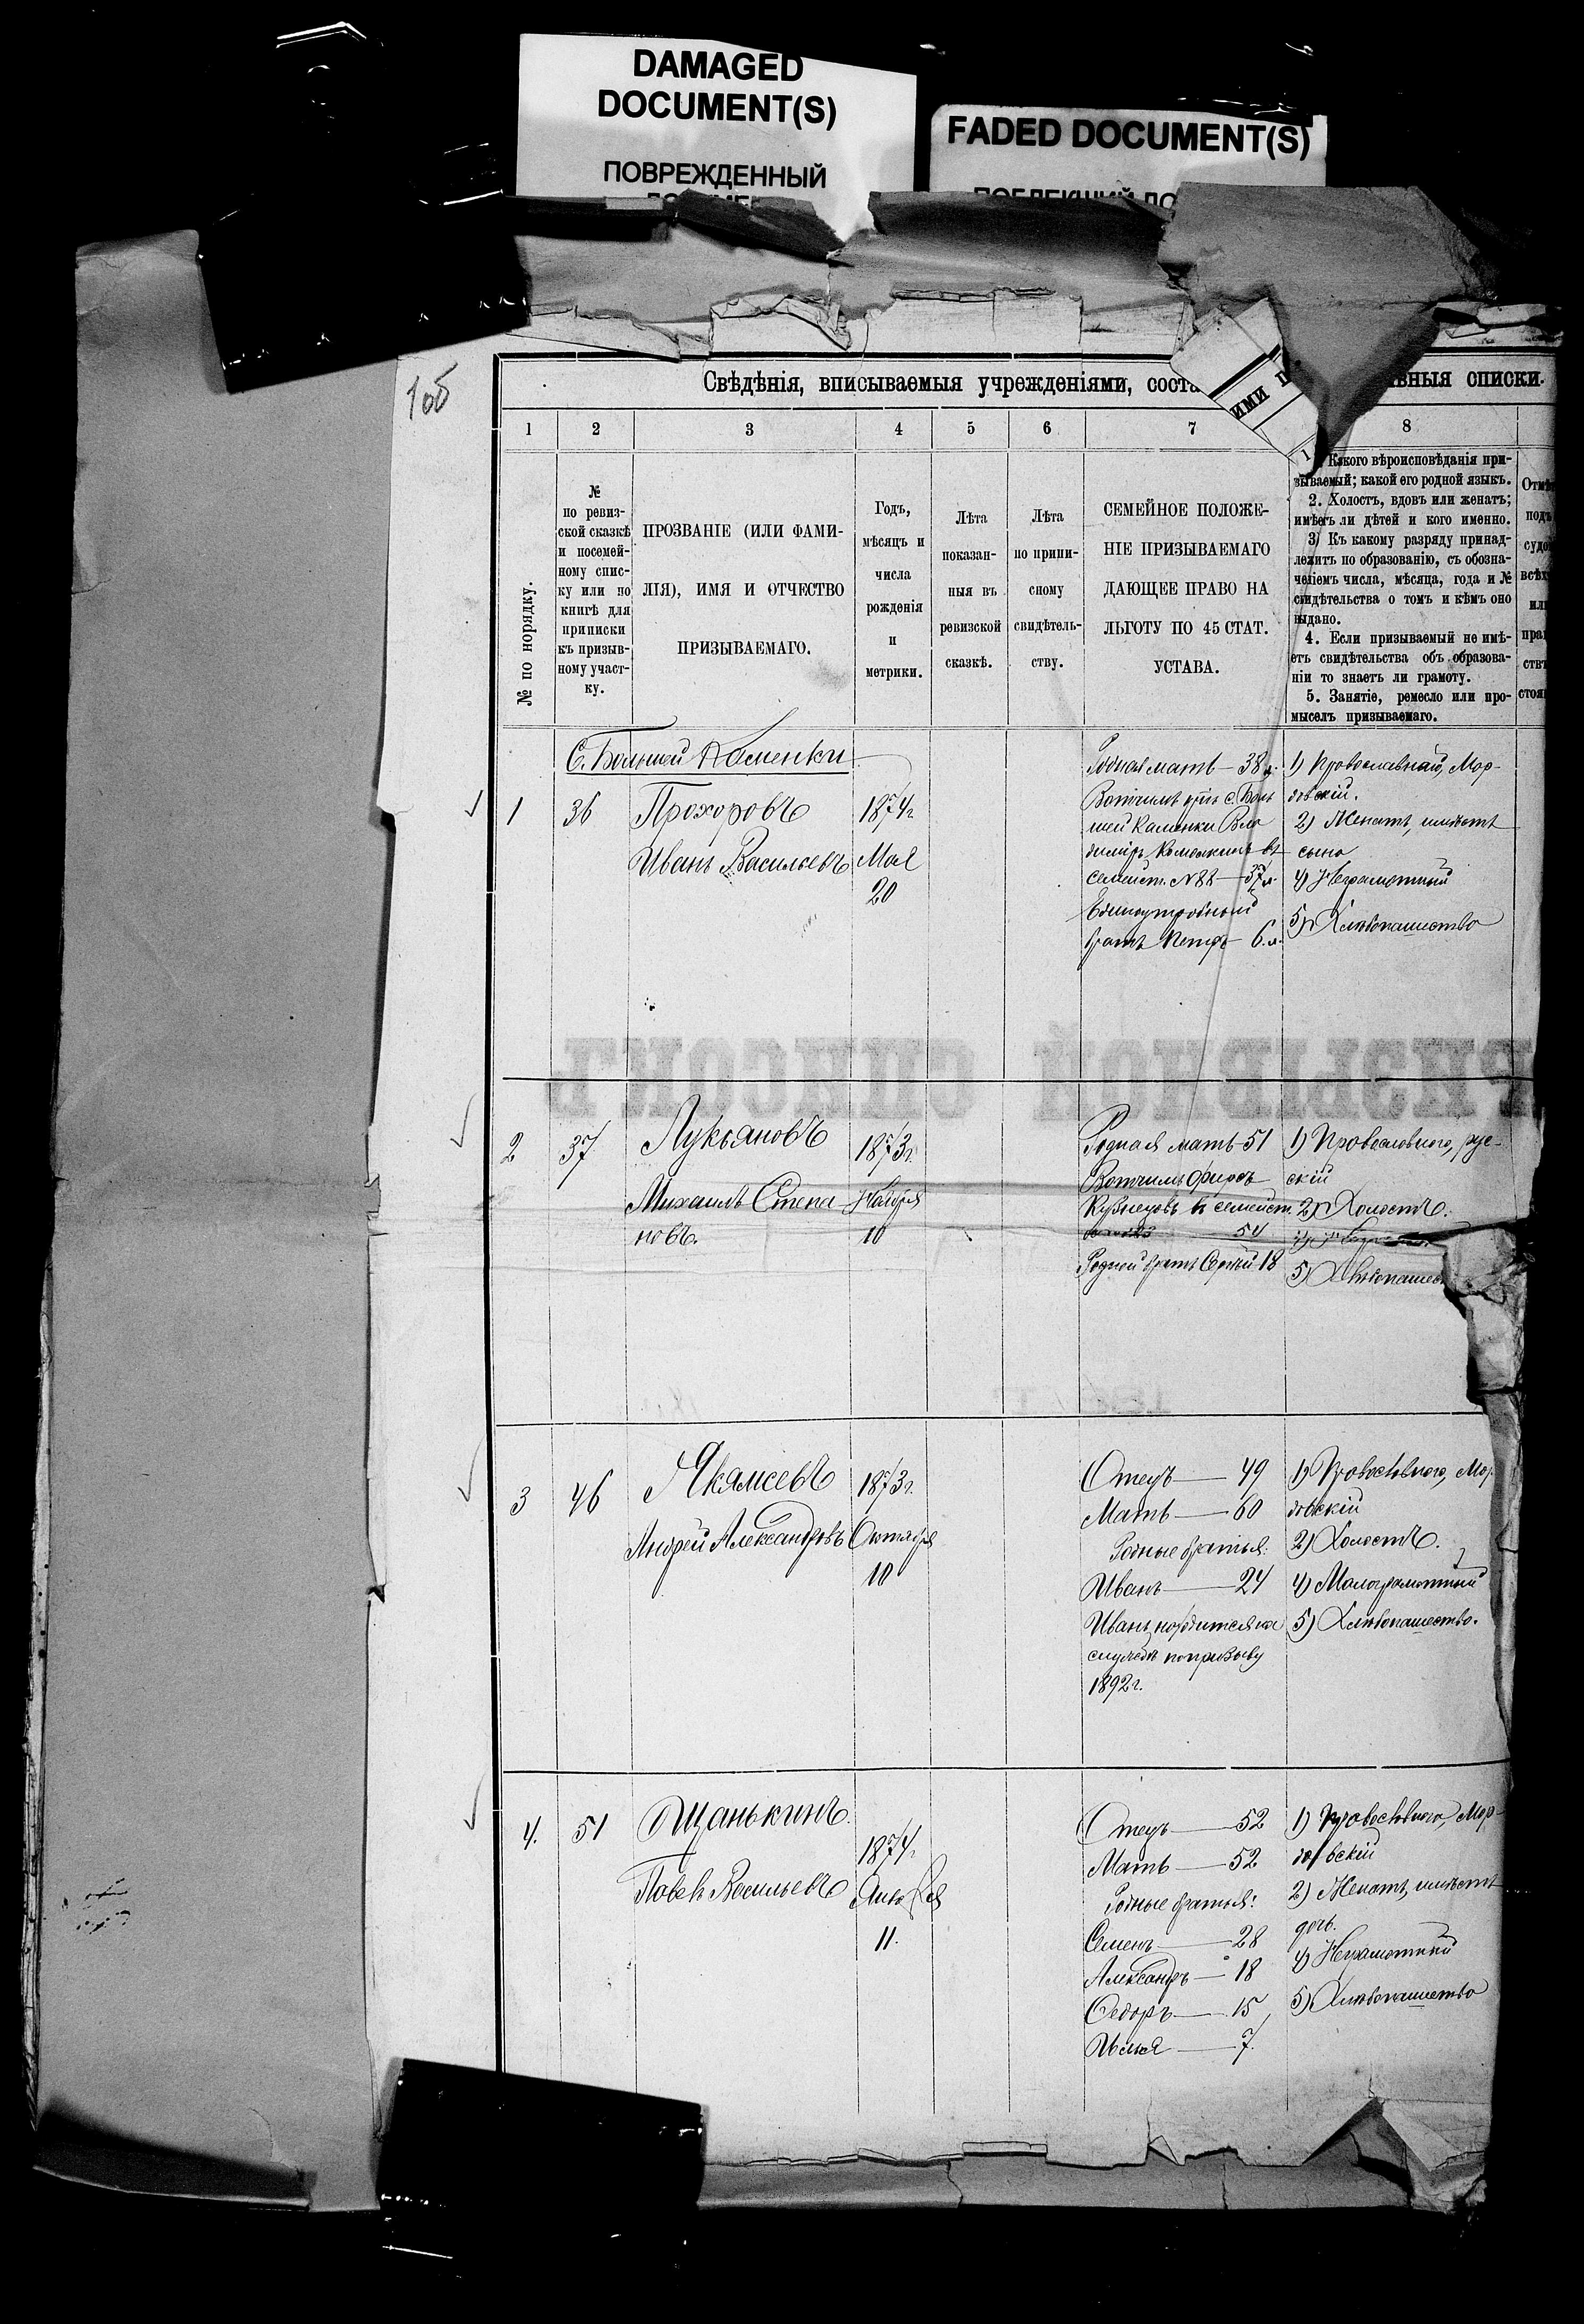 DAMAGED
DOCUMENT(S)
ПОВРЕЖДЕННЫЙ
FADED DOCUMENT(S)
105
Свѣдѣнія, вписываемыя учрежденіями,
списки.
ИМИ П
1 2 3 4 5 6 7 8
№ по порядку.
№
по ревиз-
ской сказкѣ
и посемей-
ному спис-
ку или по
книгѣ для
приписки
къ призыв-
ному участ-
ку.
ПРОЗВАНІЕ (ИЛИ ФАМИ-
ЛІЯ), ИМЯ И ОТЧЕСТВО
ПРИЗЫВАЕМАГО.
Годъ,
мѣсяцъ и
числа
рожденія
и
метрики.
Лѣта
показан-
ныя въ
ревизской
сказкѣ.
Лѣта
по припи-
сному
свидѣтель-
ству.
СЕМЕЙНОЕ ПОЛОЖЕ-
НІЕ ПРИЗЫВАЕМАГО
ДАЮЩЕЕ ПРАВО НА
ЛЬГОТУ ПО 45 СТАТ.
УСТАВА.
1. Какого вѣроисповѣданія при-
зываемый; какой его родной языкъ.
2. Холостъ, вдовъ или женатъ;
имѣетъ ли дѣтей и кого именно.
3) Къ какому разряду принад-
лежитъ по образованію, съ обозна-
ченіемъ числа, мѣсяца, года и №
свидѣтельства о томъ и кѣмъ оно
выдано.
4. Если призываемый не имѣ-
етъ свидѣтельства объ образова-
ніи то знаетъ ли грамоту.
5. Занятіе, ремесло или про-
мыселъ призываемаго.
С. Большей Каменки
1
36
Прохоровъ
Иванъ Васильевъ
1874г
Мая
20
Родная мать — 38 л.
Вотчимъ крѣс. с. Боль
шей Каменки Вла
диміръ въ
семейст. № 88 — 37 л.
Единоутробный
братъ Петръ — 6. л.
1) Православнаго, Мор-
довскій.
2) Женатъ, имѣетъ
сына
4) Неграмотный
5) Хлѣбопашество
ПРИЗЫВНОЙ СПИСОКЪ
2
37
Лукьяновъ
Михаилъ Степа
новъ.
1873г.
Ноября
10
Родная мать — 51
Вотчимъ Фирсъ
Кузнецовъ въ семейст.
54
Родной братъ Сергѣй 18
1) Православнаго, рус-
скій
2) Холостъ.
5) Хлѣбопашес
3
46
Якямсевъ
Андрей Александровъ
1873г.
Октября
10
Отецъ — 49
Мать — 60
Родные братья:
Иванъ — 24
Иванъ находится на
службѣ по призыву
1892г.
1) Православнаго, Мор
довскій
2) Холостъ.
4) Малограмотный
5) Хлѣбопашество.
4.
51
Щанькинъ.
Павелъ Васильевъ
1874г
Января
11.
Отецъ — 52
Мать — 52
Родные братья:
Семенъ — 28
Александръ — 18
Ѳедоръ — 15
Илья — 7.
1) Православнаго, Мор-
довскій
2) Женатъ, имѣетъ
дочь.
4) Неграмотный
5) Хлѣбопашество